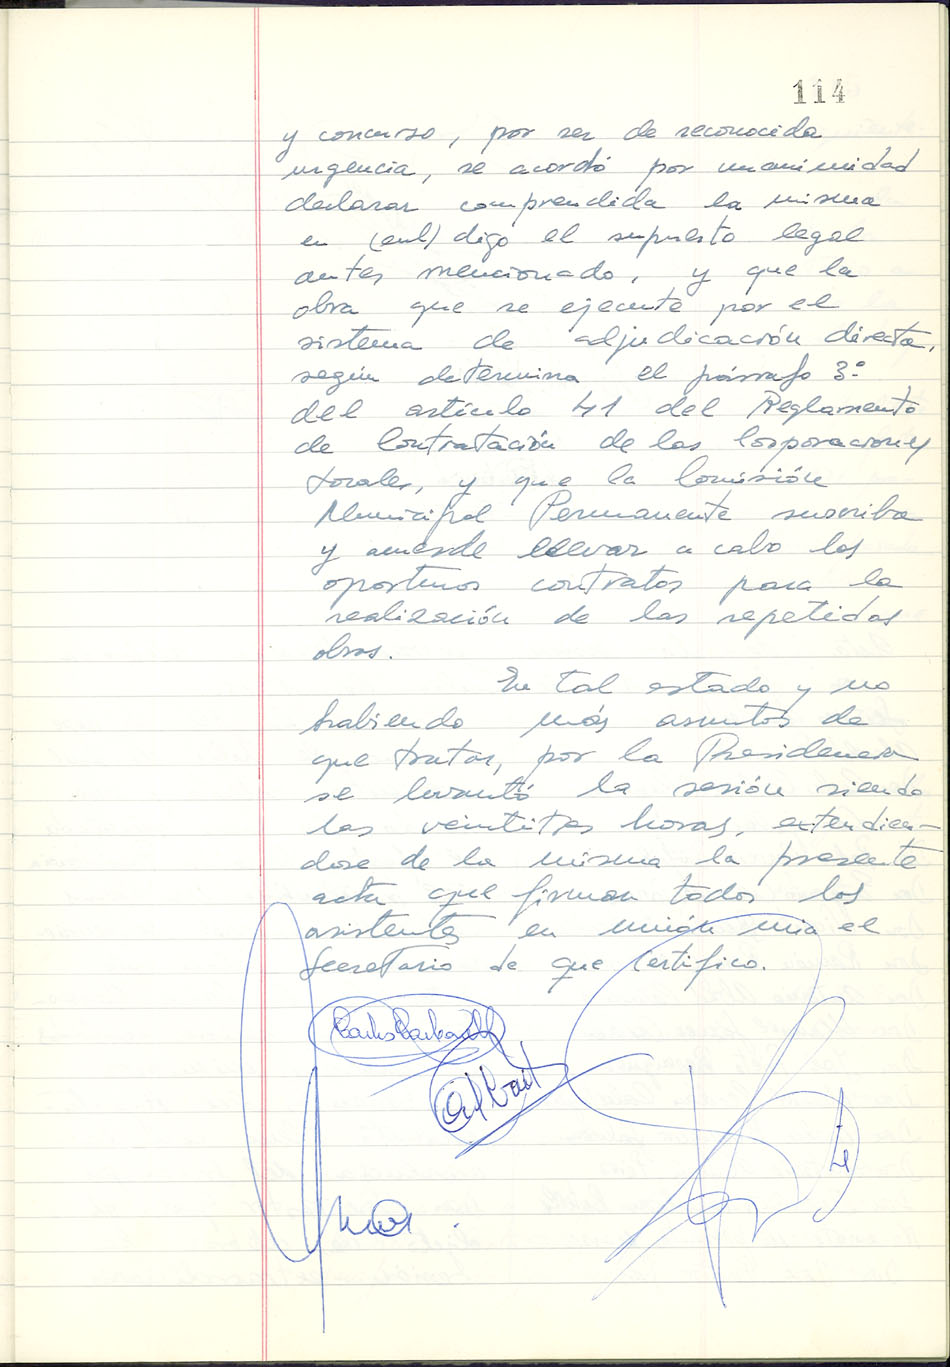 114
y concurso, por ser de reconocida
urgencia, se acordó por unanimidad
declarar comprendida la misma
en (enl) digo el supuesto legal
antes mencionado, y que la
obra que se ejecute por el
sistema de adjudicación directa,
según determina el párrafo 3º
del artículo 41 del Reglamento
de Contratación de las Corporaciones
Locales, y que la Comisión
Municipal Permanente suscriba
y acuerde llevar a cabo los
oportunos contratos para la
realización de las repetidas
obras.
En tal estado y no
habiendo más asuntos de
que tratar, por la Presidencia
se levantó la sesión siendo
las veintitrés horas, extendién-
dose de la misma la presente
acta que firman todos los
asistentes en unión mia el
Secretario de que certifico.
Carlos